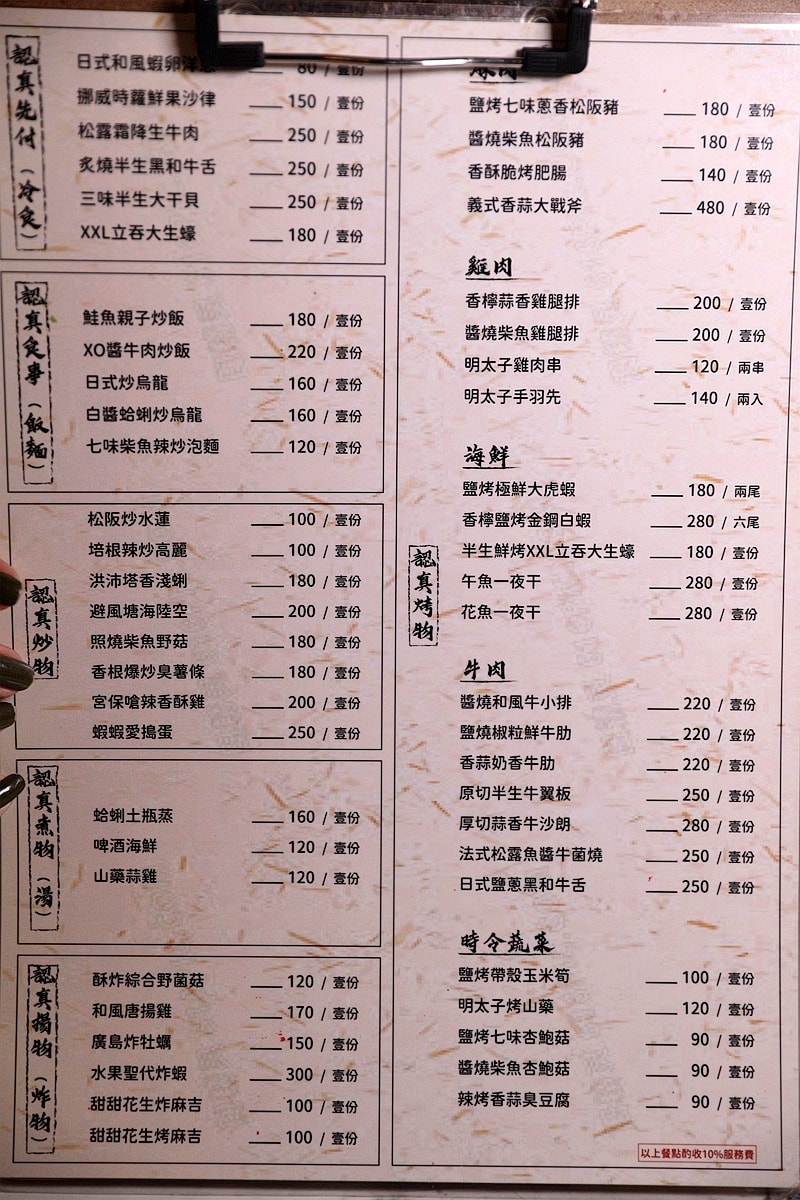 認真先付（冷炙）
日式和風蝦卵洋 80 / 壹份
挪威時蘿鮮果沙律 150 / 壹份
松露霜降生牛肉 250 / 壹份
炙燒半生黑和牛舌 250 / 壹份
三味半生大干貝 250 / 壹份
XXL立吞大生蠔 180 / 壹份
認真食事（飯麵）
鮭魚親子炒飯 180 / 壹份
XO醬牛肉炒飯 220 / 壹份
日式炒烏龍 160 / 壹份
白醬蛤蜊炒烏龍 160 / 壹份
七味柴魚辣炒泡麵 120 / 壹份
認真炒物
松阪炒水蓮 100 / 壹份
培根辣炒高麗 100 / 壹份
洪沛塔香淺蜊 180 / 壹份
避風塘海陸空 200 / 壹份
照燒柴魚野菇 180 / 壹份
香根爆炒臭薯條 180 / 壹份
宮保嗆辣香酥雞 200 / 壹份
蝦蝦愛搗蛋 250 / 壹份
認真煮物（湯）
蛤蜊土瓶蒸 160 / 壹份
啤酒海鮮 120 / 壹份
山藥蒜雞 120 / 壹份
認真揚物（炸物）
酥炸綜合野菌菇 120 / 壹份
和風唐揚雞 170 / 壹份
廣島炸牡蠣 150 / 壹份
水果聖代炸蝦 300 / 壹份
甜甜花生炸麻吉 100 / 壹份
甜甜花生烤麻吉 100 / 壹份
認真烤物
豚肉
鹽烤七味蔥香松阪豬 180 / 壹份
醬燒柴魚松阪豬 180 / 壹份
香酥脆烤肥腸 140 / 壹份
義式香蒜大戰斧 480 / 壹份
雞肉
香檸蒜香雞腿排 200 / 壹份
醬燒柴魚雞腿排 200 / 壹份
明太子雞肉串 120 / 兩串
明太子手羽先 140 / 兩入
海鮮
鹽烤極鮮大虎蝦 180 / 兩尾
香檸鹽烤金鋼白蝦 280 / 六尾
半生鮮烤XXL立吞大生蠔 180 / 壹份
午魚一夜干 280 / 壹份
花魚一夜干 280 / 壹份
牛肉
醬燒和風牛小排 220 / 壹份
鹽燒椒粒鮮牛肋 220 / 壹份
香蒜奶香牛肋 220 / 壹份
原切半生牛翼板 250 / 壹份
厚切蒜香牛沙朗 280 / 壹份
法式松露魚醬牛菌燒 250 / 壹份
日式鹽蔥黑和牛舌 250 / 壹份
時令蔬菜
鹽烤帶殼玉米筍 100 / 壹份
明太子烤山藥 120 / 壹份
鹽烤七味杏鮑菇 90 / 壹份
醬燒柴魚杏鮑菇 90 / 壹份
辣烤香蒜臭豆腐 90 / 壹份
以上餐點酌收10%服務費